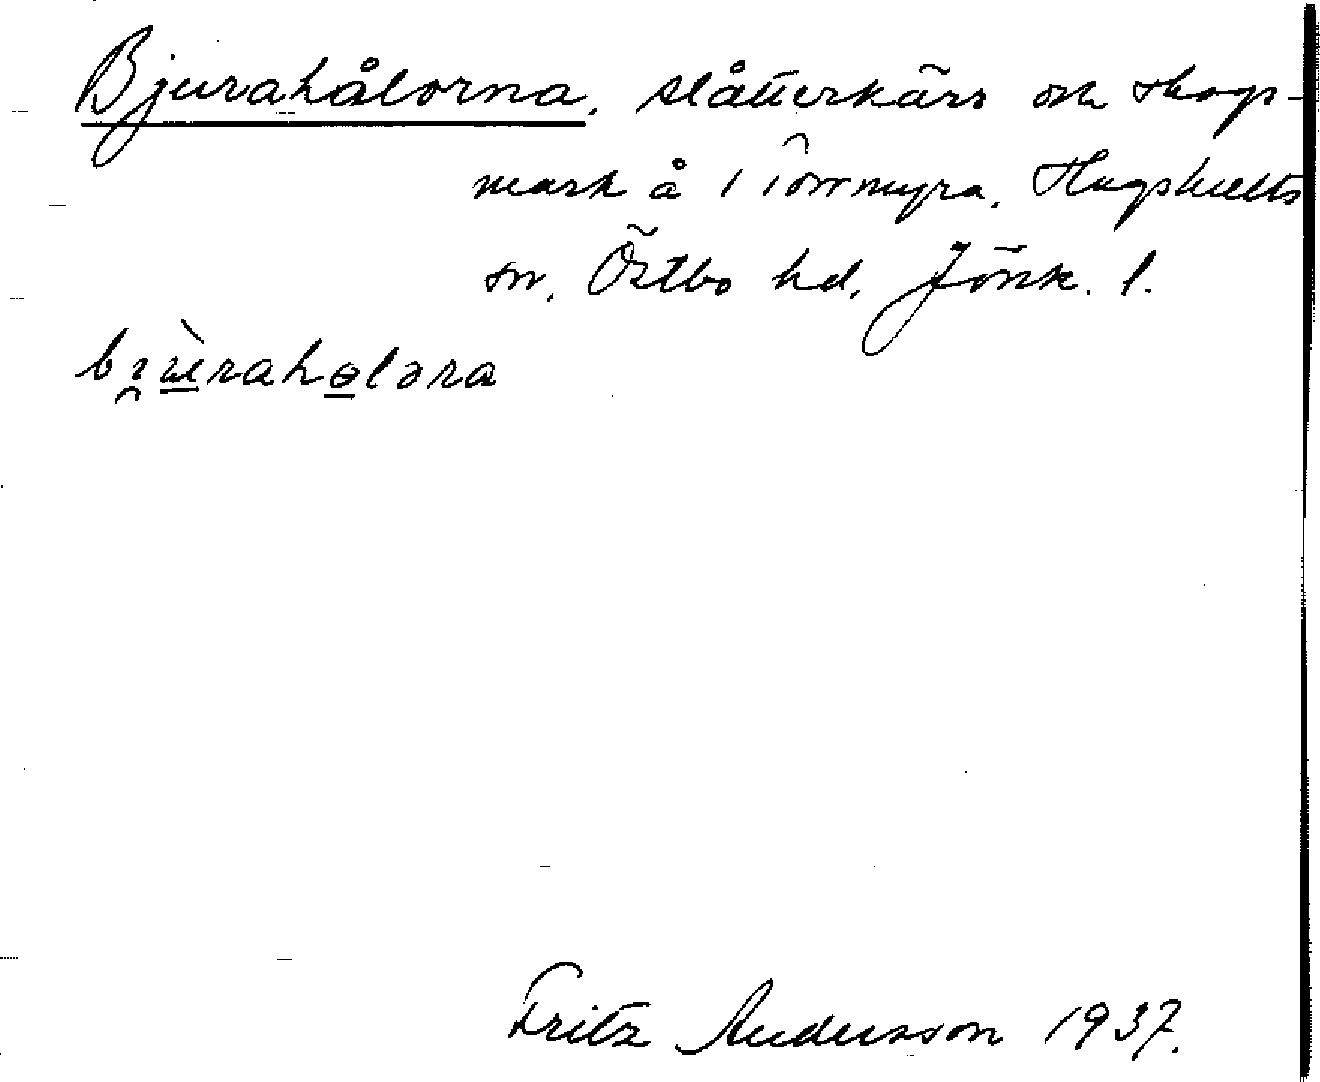 Bjurahålorna, slåtterkärr och skogs-
mark å 1 Törrmyra, Hagshults
sn, Östbo hd, Jönk. l.
Fritz Andersson 1937.